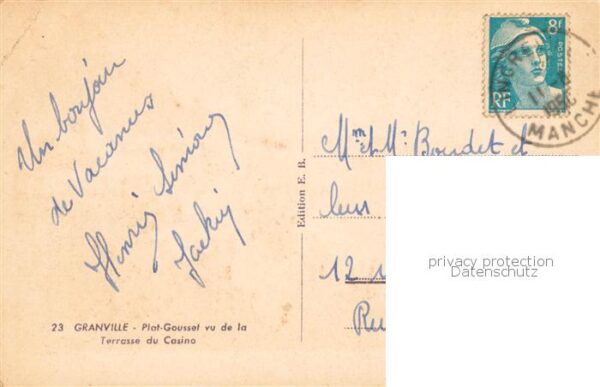 Un bonjour
de Vacances
Henri Simone
Jacky
23 GRANVILLE - Plat-Gousset vu de la
Terrasse du Casino
Edition E. B.
8f
POSTES
RF
11-8
MANCHE
Mme Mr Bourdet et
leur
12
privacy protection
Datenschutz